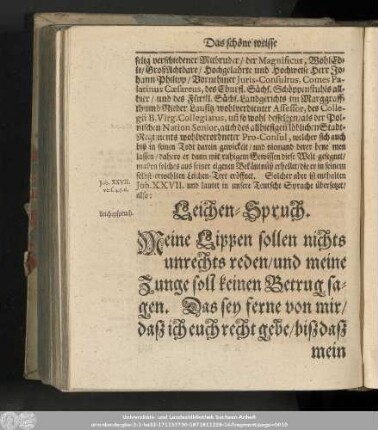 Das schöne weisse
selig verschiedener Mitbruder / der Magnificus, WohlEd-
le / GroßAchtbare / Hochgelahrte und Hochweise Herr Jo-
hann Philipp / Vornehmer Juris-Consultus, Comes Pa-
latinus Cæsareus, des Churfl. Sächs. Schöppenstuhls all-
hier / und des Fürstl. Sächs. Landgerichts im Marggraff-
thumb Nieder Lausitz wohlverdienter Assessor, des Colle-
gii B. Virg. Collegiatus, uñ so wohl desselben / als der Pol-
nischen Nation Senior, auch des allhiesigen löblichen Stadt-
Regiments wohlverordneter Pro-Consul, welcher sich auch
biß in seinen Todt darein gewickelt / und niemand derer bene men
lassen / dahero er dann mit ruhigem Gewissen diese Welt gesegnet /
maßen solches aus seiner eigenen Bekäntnüß erhellet / die er in seinem
selbst-erwehlten Leichen-Text eröffnet. Solcher aber ist enthalten
Job. XXVII. und lautet in unsere Teutsche Sprache übersetzt /
also:
Job. XXVII.
vers. 4. 5. 6.
Leichenspruch.
Leichen-Spruch.
Meine Lippen sollen nichts
unrechts reden / und meine
Zunge soll keinen Betrug sa-
gen. Das sey ferne von mir /
daß ich euch recht gebe / biß daß
mein
Universitäts- und Landesbibliothek Sachsen-Anhalt